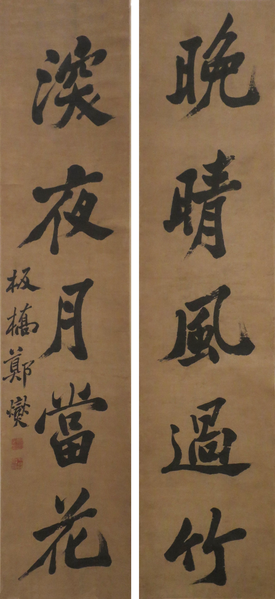 晚晴風過竹
深夜月當花
板橋鄭燮